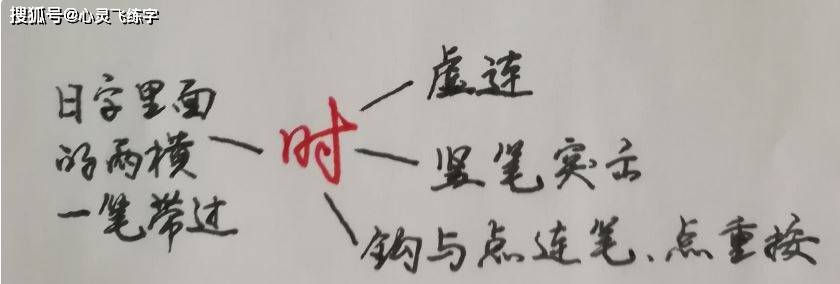 搜狐号@心灵飞练字
日字里面
的两横
一笔带过
时
虚连
竖笔突出
钩与点连笔、点重按